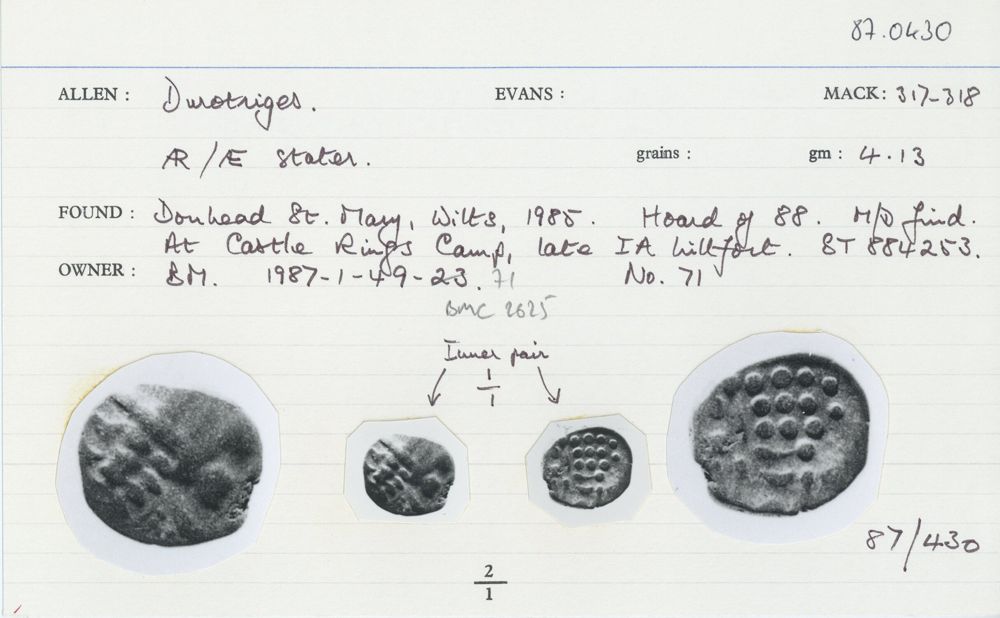 87.0430
ALLEN : Durotriges. EVANS : MACK: 317-318
ÆR / Æ Stater. grains : gm : 4.13
FOUND : Donhead St. Mary, Wilts, 1985. Hoard of 88. M/D find.
At Castle Rings Camp, late IA hillfort. ST 884253.
OWNER : BM. 1987-1-49-23. 71 No. 71
BMC 2625
Inner pair
1
1
87/430
2
1